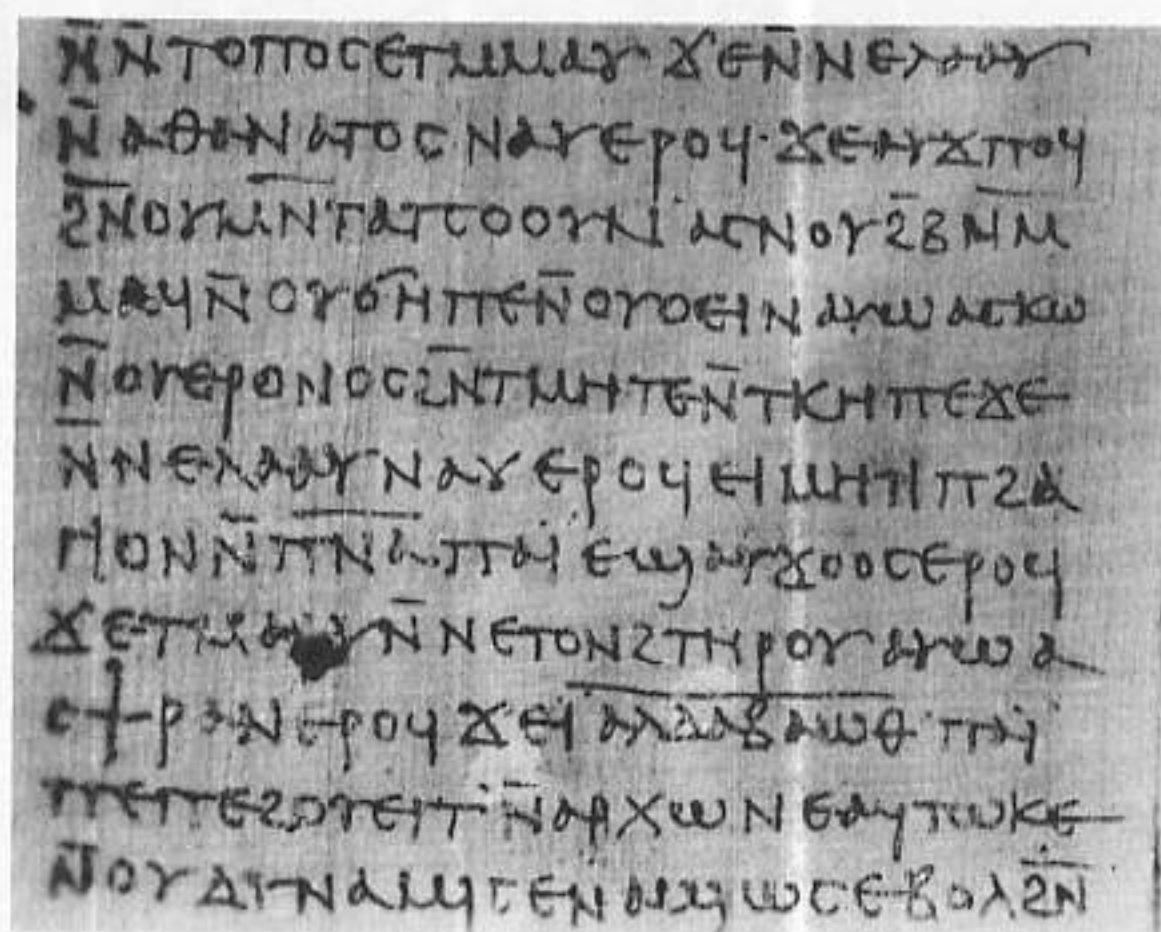 Ⲛ̄Ⲛ̄ⲦⲞⲠⲞⲤⲈⲦⲘⲘⲀⲨ·ϪⲈⲚ̄ⲚⲈⲗⲀⲀⲨ
Ⲛ̄ⲀⲐⲀⲚⲀⲦⲞⲤ·ⲚⲀⲨⲈⲢⲞϤ·ϪⲈⲀⲤϪⲠⲞϤ
ϨⲚ̄ⲞⲨⲘⲚ̄ⲦⲀⲦⲤⲞⲞⲨⲚ ⲀⲤⲚⲞⲨϨ̄ⲂⲚ̄Ⲙ̄
ⲘⲀϤⲚ̄ⲞⲨϬⲎⲠⲈⲚ̄ⲞⲨⲞⲈⲒⲚⲀⲨⲰⲀⲤⲔⲰ
Ⲛ̄ⲞⲨⲐⲢⲞⲚⲞⲤϨⲚ̄ⲦⲘⲎⲦⲈⲚ̄ⲦϬⲎⲠⲈϪⲈ
Ⲛ̄ⲚⲈⲗⲀⲀⲨⲚⲀⲨⲈⲢⲞϤⲈⲒⲘⲎⲦⲒⲠϨⲀ
ⲄⲒⲞⲚⲚ̄Ⲡ̄Ⲛ̄Ⲁ̄·ⲠⲀⲒⲈϢⲀⲨϪⲞⲞⲤⲈⲢⲞϤ
ϪⲈⲦⲘⲀⲀⲨⲚ̄ⲚⲈⲦⲞⲚϨⲦⲎⲢⲞⲨⲀⲨⲰⲀ
ⲤϮⲢⲀⲚⲈⲢⲞϤϪⲈⲒ̄Ⲁ̄Ⲗ̄Ⲇ̄Ⲁ̄Ⲃ̄Ⲁ̄Ⲱ̄Ⲑ̄·ⲠⲀⲒ
ⲠⲈⲠⲈϨⲞⲨⲈⲒⲦ·Ⲛ̄ⲀⲢⲬⲰⲚⲈⲀϤⲦⲰⲔⲈ
Ⲛ̄ⲞⲨⲆⲨⲚⲀⲘⲒⲤⲈⲚⲀϢⲰⲤⲈⲂⲞⲖϨⲚ̄